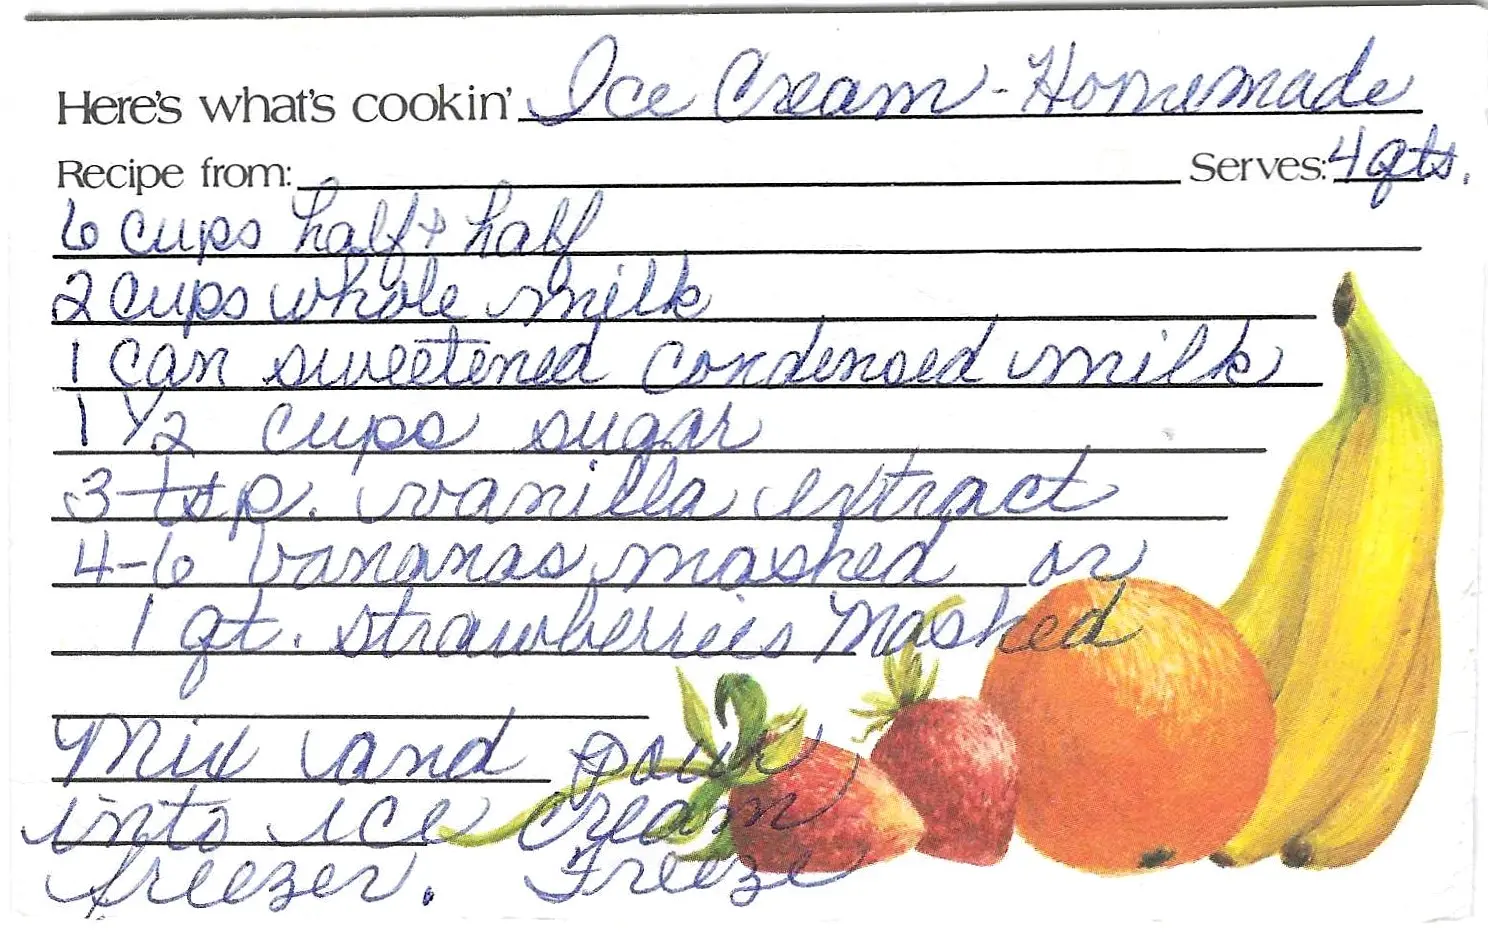 Here's what's cookin' Ice Cream - Homemade
Recipe from: Serves: 4 qts.
6 cups half + half
2 cups whole milk
1 can sweetened condensed milk
1 1/2 cups sugar
3 tsp. vanilla extract
4-6 bananas mashed or
1 qt. strawberries mashed
Mix and pour
into ice cream
freezer. Freeze